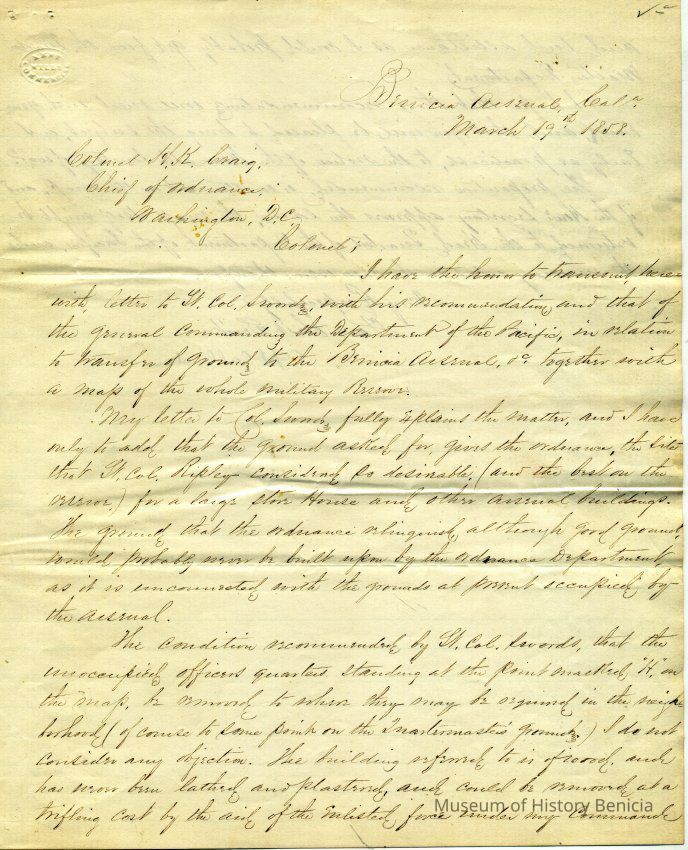 Benicia Arsenal, Cala
March 19th 1858.
Colonel H. K. Craig,
Chief of Ordnance,
Washington, D.C.
Colonel;
I have the honor to transmit, here
with, letter to Lt. Col. Swords, with his recommendation and that of
the General Commanding the Department of the Pacific, in relation
to transfer of ground to the Benicia Arsenal, &c together with
a map of the whole military Reserve.
My letter to Col. Swords fully explains the matter, and I have
only to add, that the ground asked for, gives the ordnance, the site
that Lt. Col. Ripley considered so desirable, (and the best on the
reserve,) for a large store House and other arsenal buildings.
The ground, that the ordnance relinquish, although good ground,
would probably never be built upon by the Ordnance Department,
as it is unconnected with the grounds at present occupied by
the arsenal.
The condition recommended by Lt. Col. Swords, that the
unoccupied officers quarters standing at the point marked, "H," on
the map, be removed to where they may be required in the neigh-
borhood (of course to some point on the Quartermaster's grounds,) I do not
consider any objection. The building referred to is of wood, and
has never been lathed and plastered, and could be removed at a
trifling cost by the aid of the enlisted force under my command
Museum of History Benicia